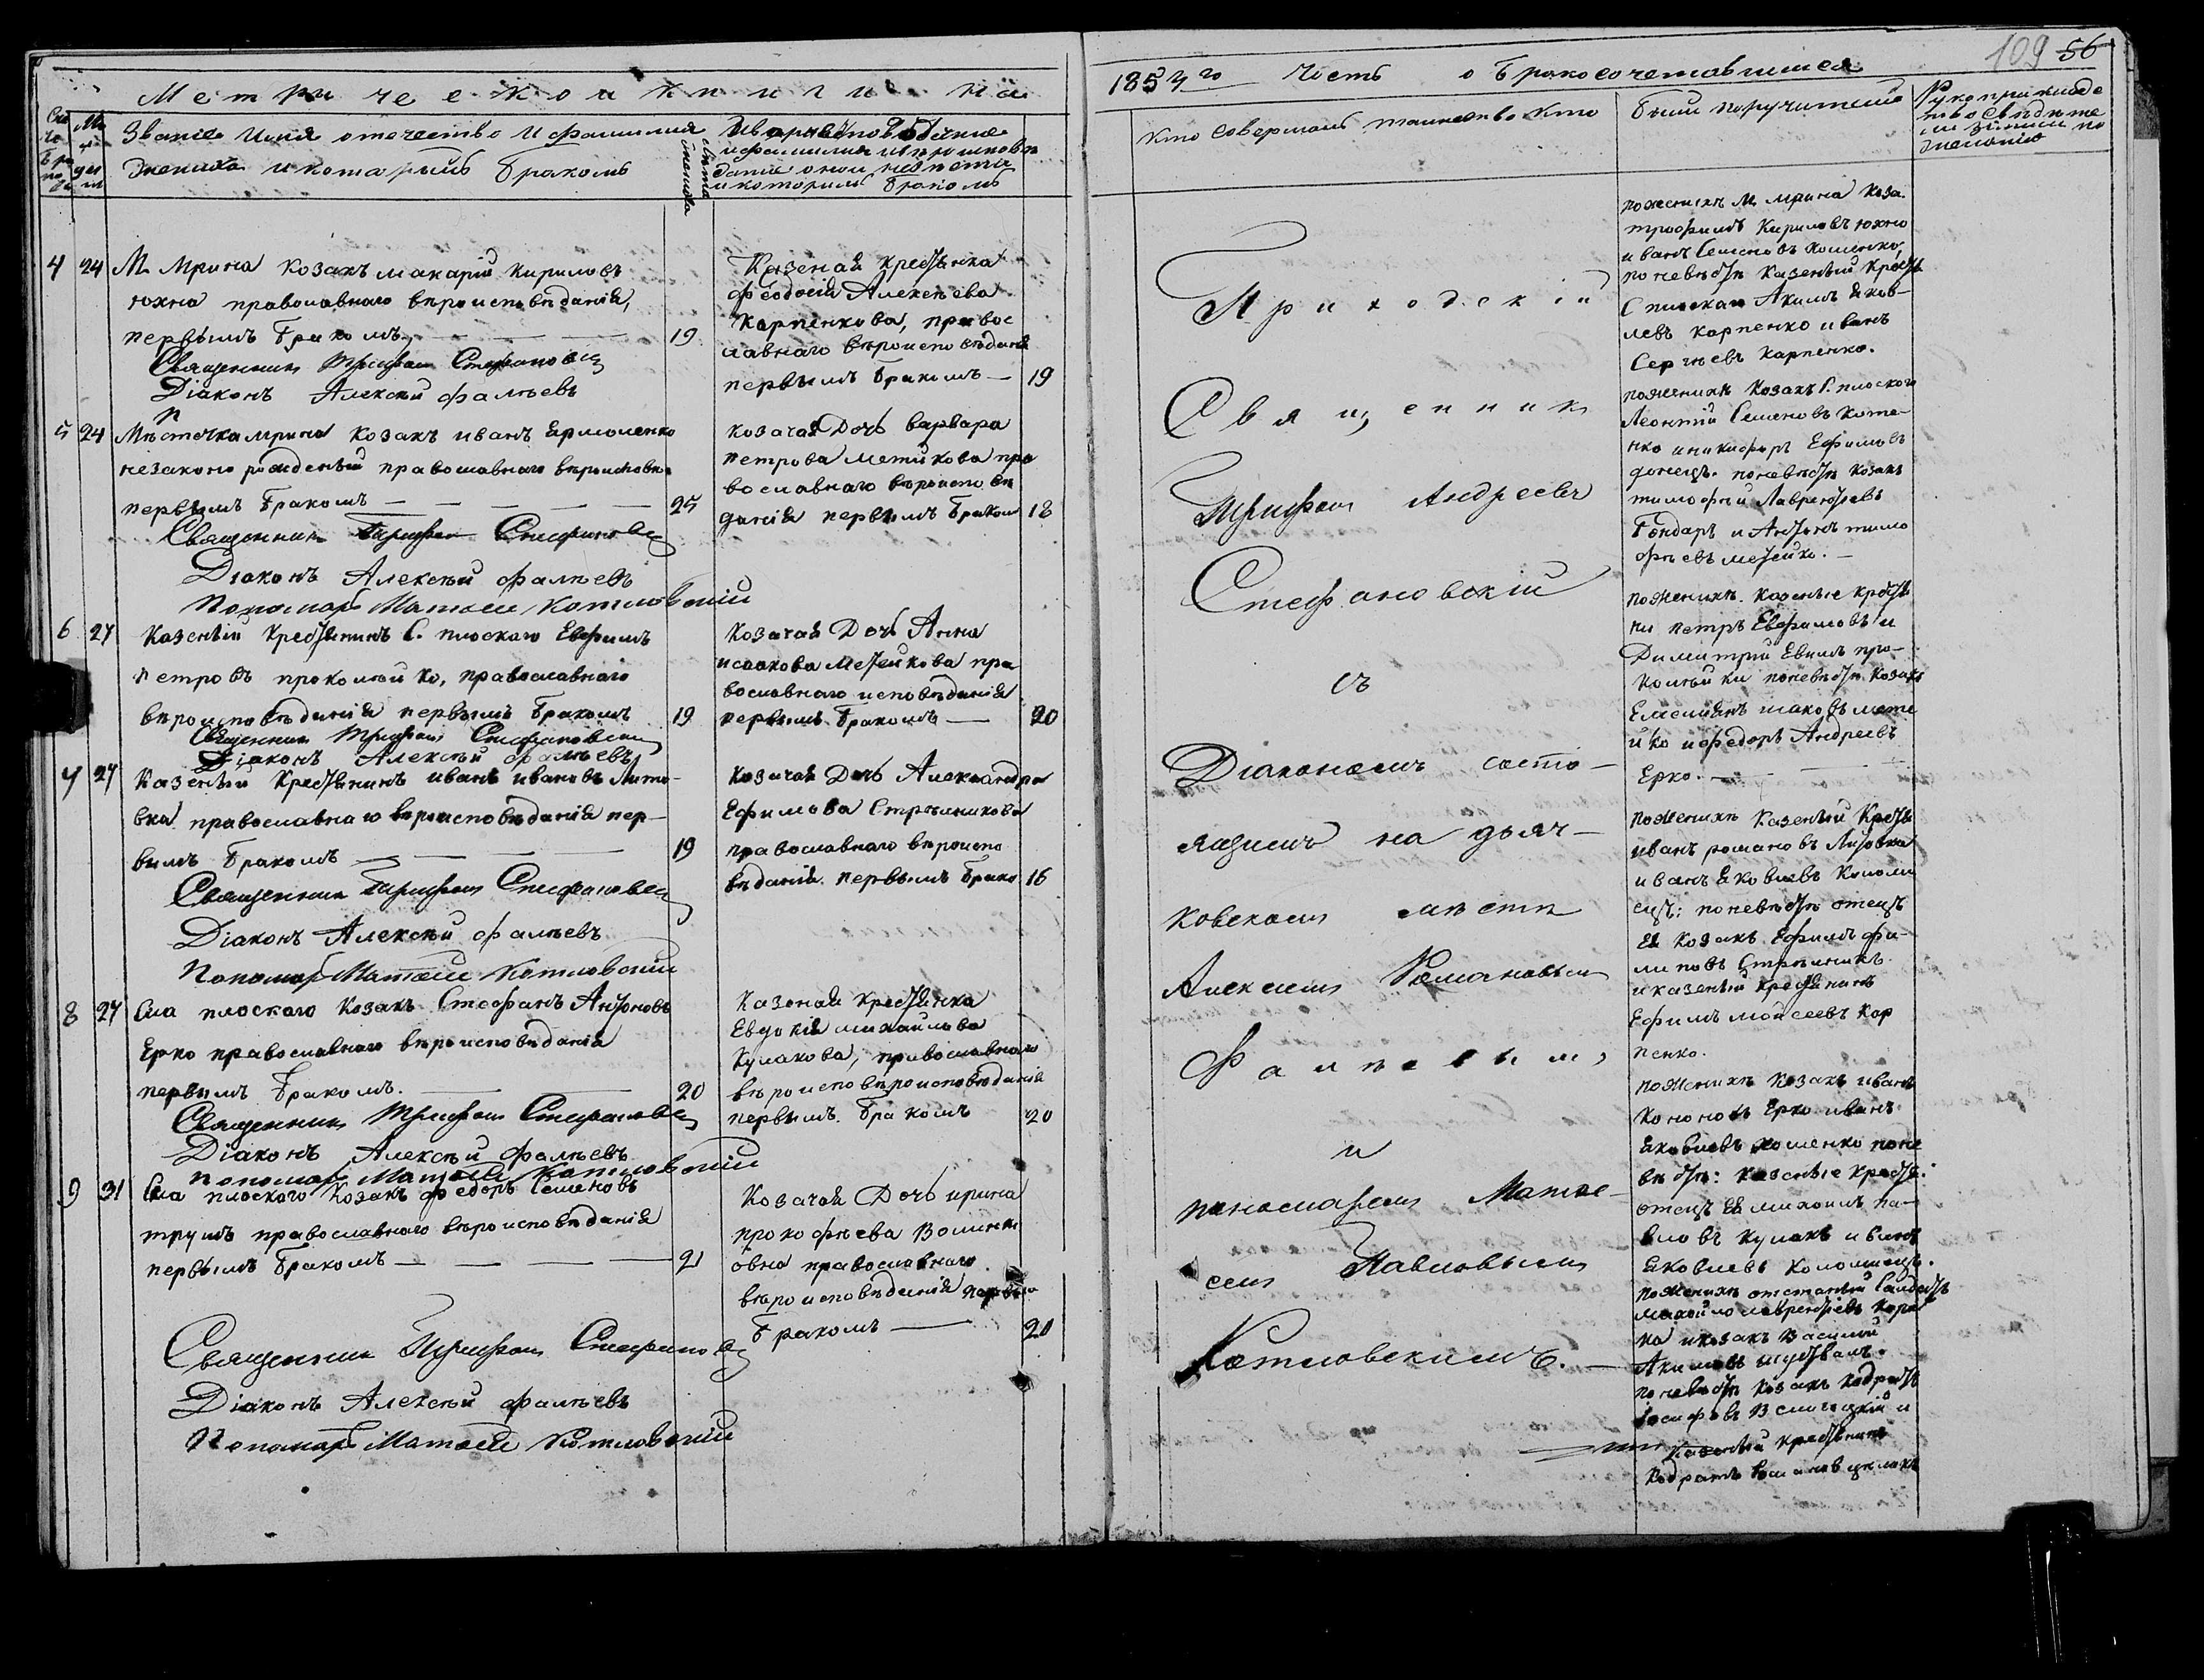 Метрической книги на
Счетъ браковъ
Мѣ
Званіе Имя отечество и фамилия
жениха и которымъ бракомъ
Лѣта жениха
и фамилия
и которымъ бракомъ
4 24 М. Мрина козакъ макарій кириловъ
юхно православнаго вѣроисповѣданія,
первымъ бракомъ 19
Священникъ Трифон Стефановск
Діаконъ Алексѣй фалѣевъ
Казеная кресьянка
феодосія Алексѣева
Карпенкова, правос
лавнаго вѣроисповѣданія
первымъ бракомъ — 19
5 24 Мѣсточка мрина козакъ иванъ Ермоленко
незаконо рожденый православнаго вѣроисповѣ
первымъ бракомъ — 25
Священникъ Трифон Стефановск
Діаконъ Алексѣй фалѣевъ
Пономарь Матѳей Котловскій
козачая Дочь варвара
петрова метикова пра
вославнаго вѣроиспо вѣ
данія первымъ браком 18
6 27 Казеный Кресьянинъ С. плоскаго Евфимъ
петровъ прокопѣйко, православнаго
вѣроисповѣданія первымъ бракомъ 19
Священник Трифон Стефановск
Діаконъ Алексѣй фалѣевъ
Козачая Дочь Анна
исаакова метейкова пра
вославнаго исповѣданія
первымъ бракомъ — 20
7 27 Казеный Кресьянинъ иванъ ивановъ Лито-
вка православнаго вѣроисповѣданія пер-
вымъ бракомъ — 19
Священник Трифон Стефановск
Діаконъ Алексѣй фалѣевъ
Пономарь Матѳей Котловскій
козачая Дочь Александра
Ефимова Стрѣлникова
православнаго вѣроиспо
вѣданія первымъ брако 16
8 27 Сла плоского козакъ Стефанъ Антоновъ
Ерко православнаго вѣроисповѣданія
первымъ бракомъ. 20
Священникъ Трифон Стефановск
Діаконъ Алексѣй фалѣевъ
Пономарь Матѳей Котловскій
Казеная кресьянка
Евдокія михайлова
Кулакова, православнаго
вѣроисповѣроисповѣданія
первымъ бракомъ 20
9 31 Сла плоского Козакъ федоръ Семеновъ
трушъ православнаго вѣроисповѣданія
первымъ бракомъ — 21
Священник Трифон Стефановск
Діаконъ Алексѣй фалѣевъ
Пономарь Матѳей Котловскій
Козачая Дочь ирина
прокофѣева Волинк
овна православнаго
вѣроисповѣданія первым
бракомъ — 20
1854 го Часть о Бракосочетавшихся
109 56
Кто совершалъ таинство Кто
были поручители
Приходскій
Священник
Трифон Андреевъ
Стефановскій
съ
Діакономъ состо-
ящимъ на дьяч-
ковскомъ мѣсти
Алексеем Романовым
Фалѣевым,
и
пономарем Матѳе-
ем Павловым
Котловскимъ. —
поженихѣ М. мрина Коза.
трофимъ Кириловъ юхно
иванъ Семеновъ Хоменко,
поневѣстѣ Казеный Кресья
С плоскаго Акимъ Яков-
левъ карпенко иванъ
Сергѣевъ Карпенко.
поженихѣ Козакъ С. плоского
Леонтій Семеновъ Коте-
нко иникифоръ Ефимовъ
донецъ. поневѣстѣ козакъ
тимофѣй Лаврентьевъ
Бондаръ и Антонъ тимо
фѣевъ метейко. —
поженихѣ. казеные кресья
ни петръ Евфимовъ и
Димитрій Евфимъ про-
копѣйки поневѣстѣ козакъ
Емелианъ исаковъ мете
йко ифедоръ Андреевъ
Ерко. —
поженихѣ Казеный Кресь
иванъ романовъ Литовка
иванъ Яковлевъ Коломи
ецъ: поневѣстѣ отецъ
Ея козакъ Ефимъ фи-
липовъ Стрѣлникъ
иказеный кресьянинъ
Ефимъ моисеевъ Кар
пенко.
поженихѣ козакъ иванъ
Кононовъ Ерко иванъ
Яковлевъ хоменко поне
вѣстѣ: казеные кресья.
отецъ Ея михаилъ па-
вловъ Кулакъ иванъ
Яковлевъ Коломиецъ.
поженихѣ отставный Салдатъ
михайло лаврентіевъ
на икозакъ Василій
Акимовъ
поневѣстѣ козакъ Кодратъ
и
Казеный кресьянинъ
Кодратъ